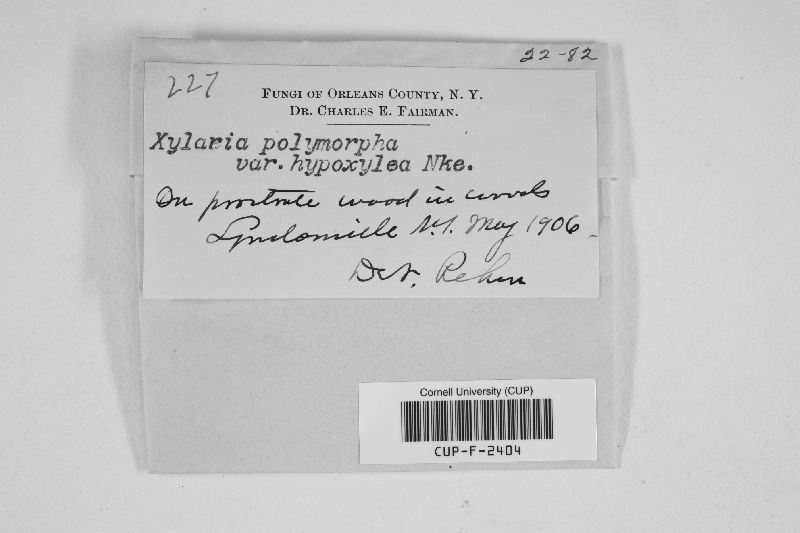 22-82
227
FUNGI OF ORLEANS COUNTY, N. Y.
DR. CHARLES E. FAIRMAN.
Xylaria polymorpha
var. hypoxylea Nke.
On prostrate wood in woods
Lyndonville N.Y. May 1906.
Det. Rehm
Cornell University (CUP)
CUP-F-2404